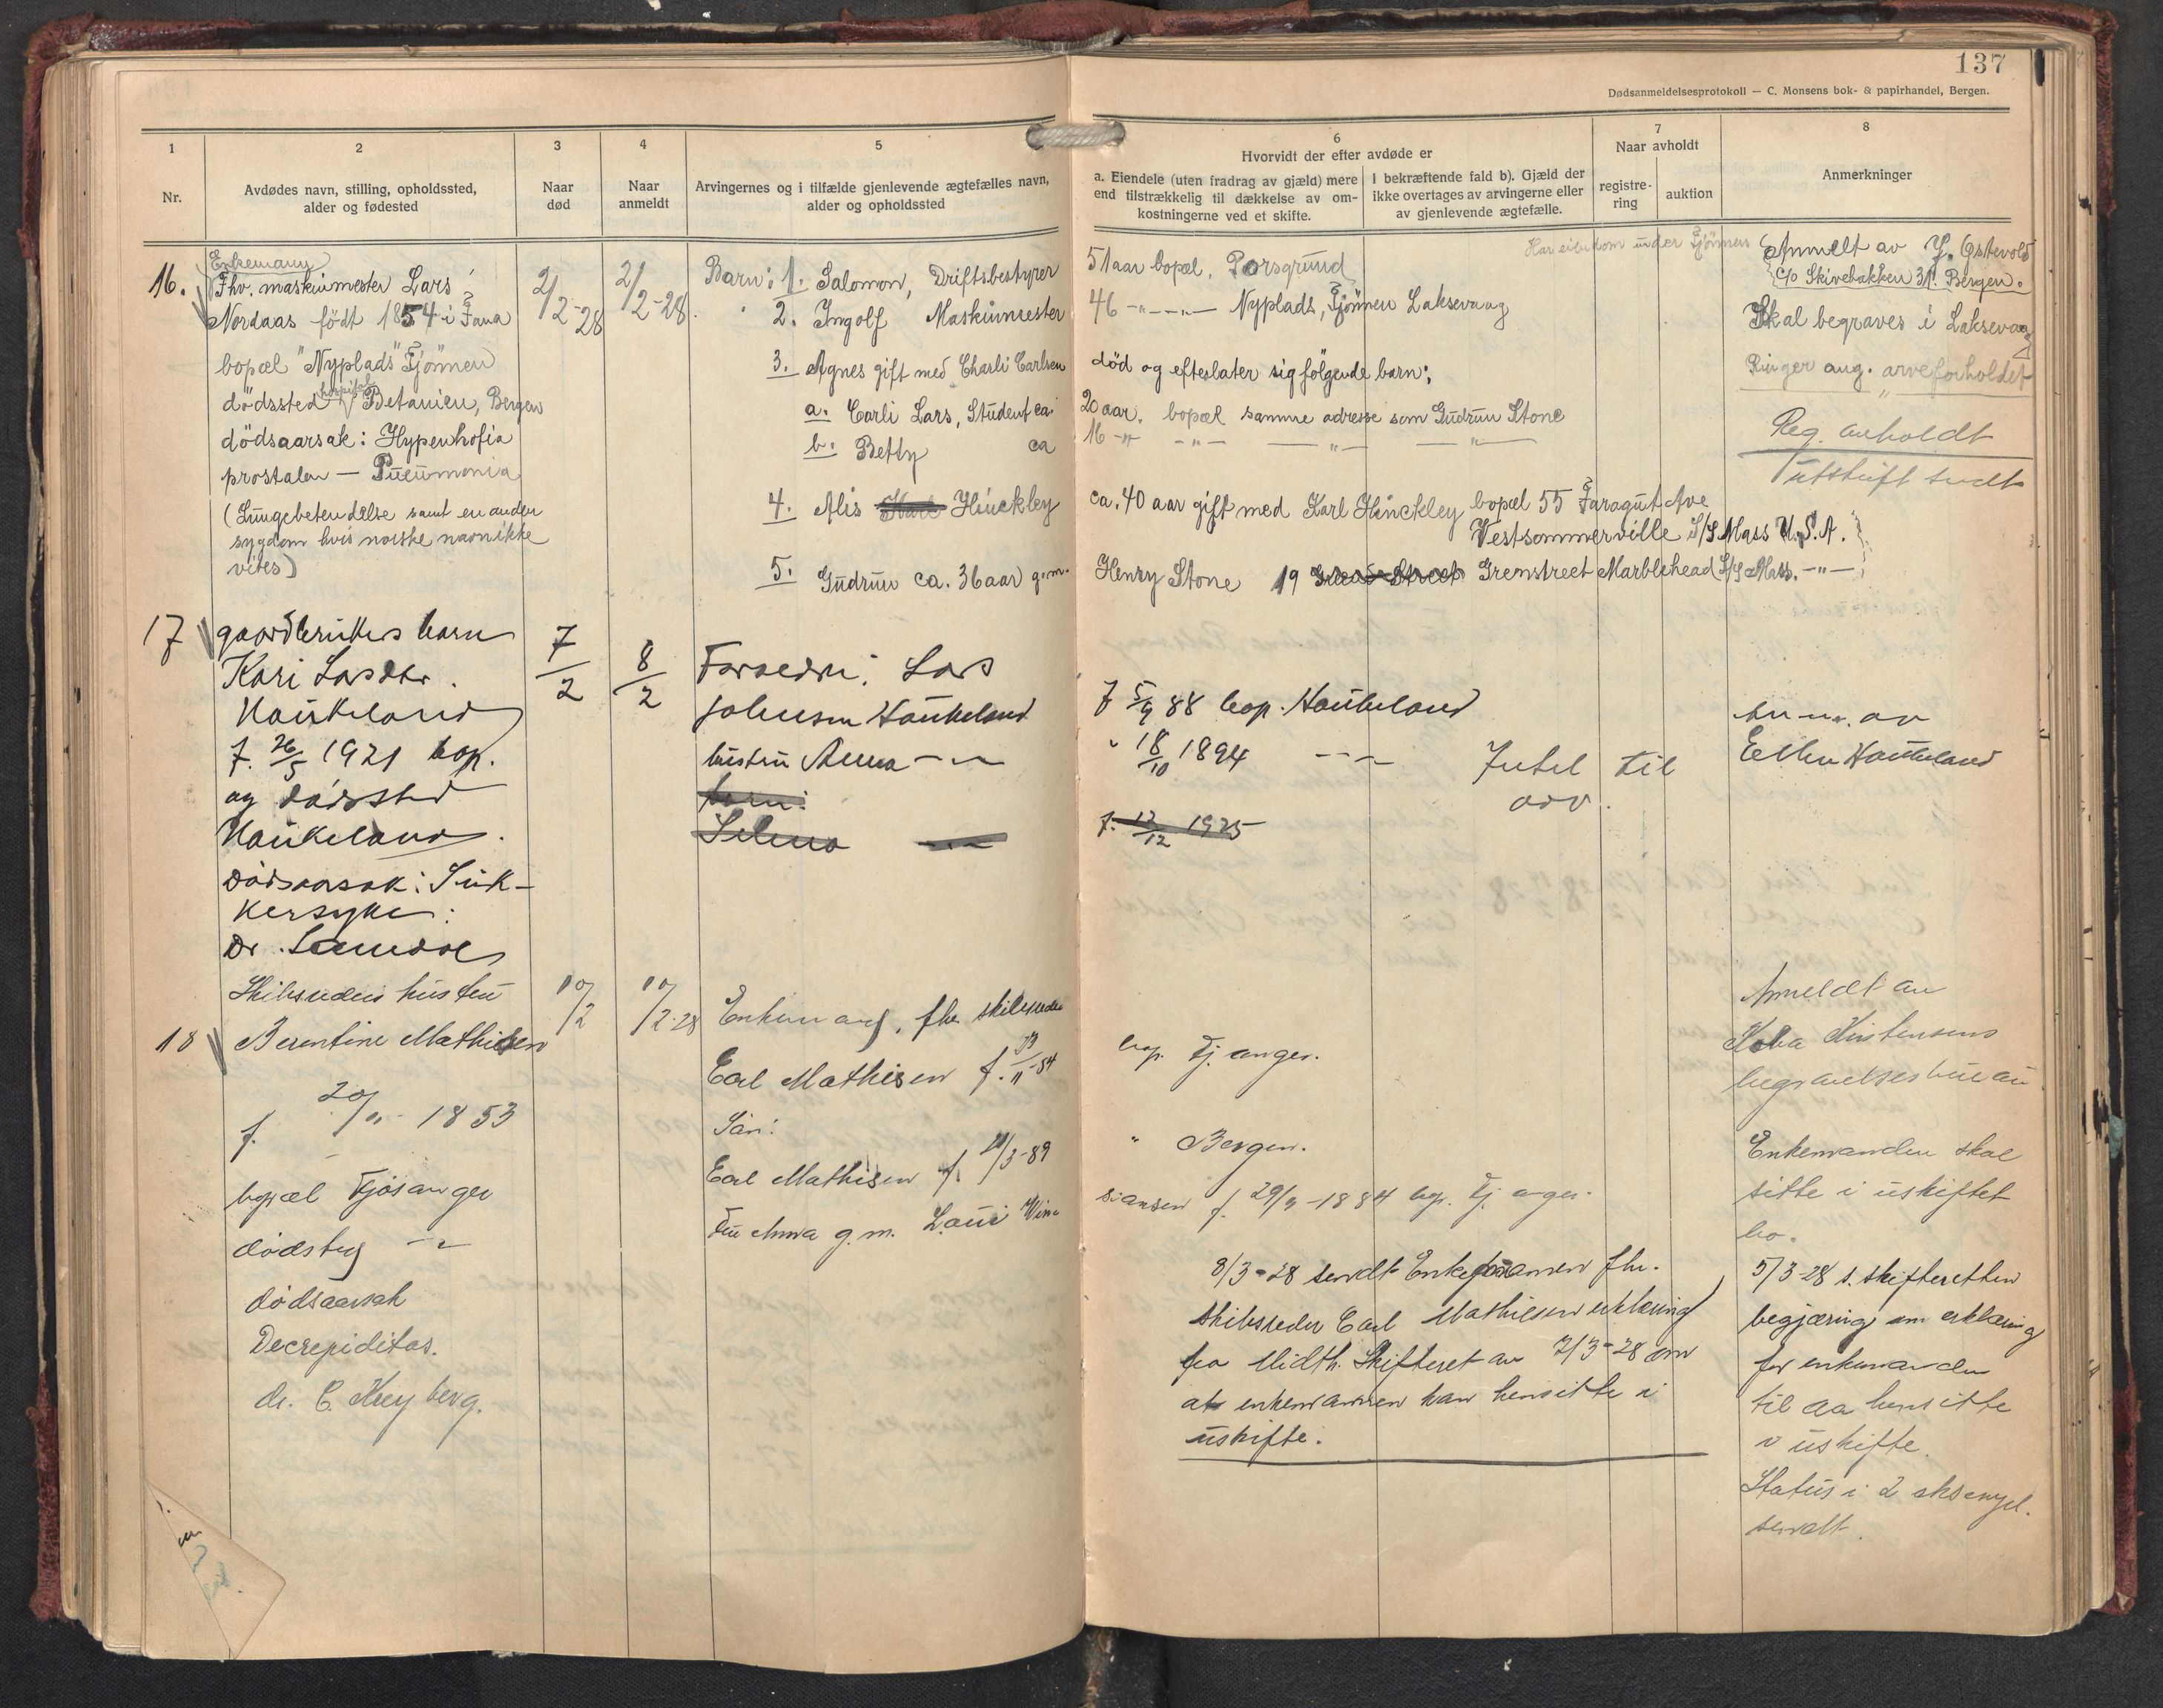 137
Dødsanmeldelsesprotokoll — C. Monsens bok- & papirhandel, Bergen.
1
Nr.
2
Avdødes navn, stilling, opholdssted,
alder og fødested
3
Naar
død
4
Naar
anmeldt
5
Arvingernes og i tilfælde gjenlevende ægtefælles navn,
alder og opholdssted
6
Hvorvidt der efter avdøde er
a. Eiendele (uten fradrag av gjæld) mere
end tilstrækkelig til dækkelse av om-
kostningerne ved et skifte.
I bekræftende fald b). Gjæld der
ikke overtages av arvingerne eller
av gjenlevende ægtefælle.
7
Naar avholdt
registre-
ring
auktion
8
Anmerkninger
16.
Enkemann
Fhv. maskinmester Lars
Nordaas født 1854 i Fana
bopæl "Nyplads" Tjönnen
dödssted hospital Betanien, Bergen
dödsaarsak: Hypenhofia
prostalen — Pneumonia
(Lungebetendelse samt en anden
sygdom hvis norske navn ikke
vites)
2/2-28
2/2-28.
Barn: 1. Salomon, Driftsbestyrer
2. Ingolf Maskinmester
3. Agnes gift med Charli Carlsen
a. Carli Lars, Student ca
b. Betty ca
4. Alis Hinckley
5. Gudrun ca. 36 aar g.m.
51 aar bopæl, Porsgrund
46 -"- -"- Nyplads, Tjönnen Laksevaag
död og efterlater sig fölgende barn:
20 aar. bopæl samme adresse som Gudrun Stone
16 -"- -"- -"- -"-
ca. 40 aar gift med Karl Hinckley bopæl 55 Faragut Ave
Vestsommerville S/S Mass U.S.A.
Henry Stone 19 Grenstreet Marblehead S/S Mass. -"-
Har eiendom under Tjönnen
Anmelt av Y. Østevold
c/o Skivebakken 31. Bergen.
Skal begraves i Laksevaag
Ringer ang. arveforholdet
Reg. avholdt
Utskrift sendt
17
gaardbrukers barn
Kari Larsdtr.
Haukeland
f. 26/5 1921 bop.
og dødssted
Haukeland.
Dødsaarsak: Suk-
kersyke:
Dr.
7/2
8/2
Foreldre: Lars
Johnsen Haukeland
hustru Anna -"-
barn:
Selma -"-
f 5/9 88 bop. Haukeland
" 18/10 1894 -"-
f. 12/12 1925
Intet til
arv.
anm. av
Haukeland
18
Skibsreders hustru
Berentine Mathiesen
f. 20/11 - 1853
bopæl Fjösanger
dödssted -"-
dödsaarsak
Decrepiditas.
dr. C. Kreyberg.
10/2
10/2-28
Enkemand, fhv skibsreder
Carl Mathisen f.
Sön:
Carl Mathisen f.
Fru Anna g.m. Lauri
bop. Fj. anger.
" Bergen.
siansen f. 29/9-1884 bop. Fj. anger.
8/3-28 sendt Enkemannen fhv.
skibsreder Carl Mathiesen erklæring
fra Midth. Skifteret av 7/3-28 om
at enkemannen kan hensitte i
uskifte.
Anmeldt av
Kristensens
begravelsesbureau
Enkemanden skal
sitte i uskiftet
bo.
5/3-28 s. skifteretten
begjæring om erklæring
for enkemanden
til aa hensitte
i uskifte.
Status i 2 eksempl.
sendt.